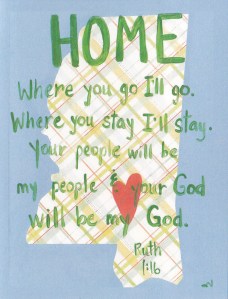 HOME
Where you go I'll go.
Where you stay I'll stay.
Your people will be
my people & your God
will be my God.
Ruth
1:16